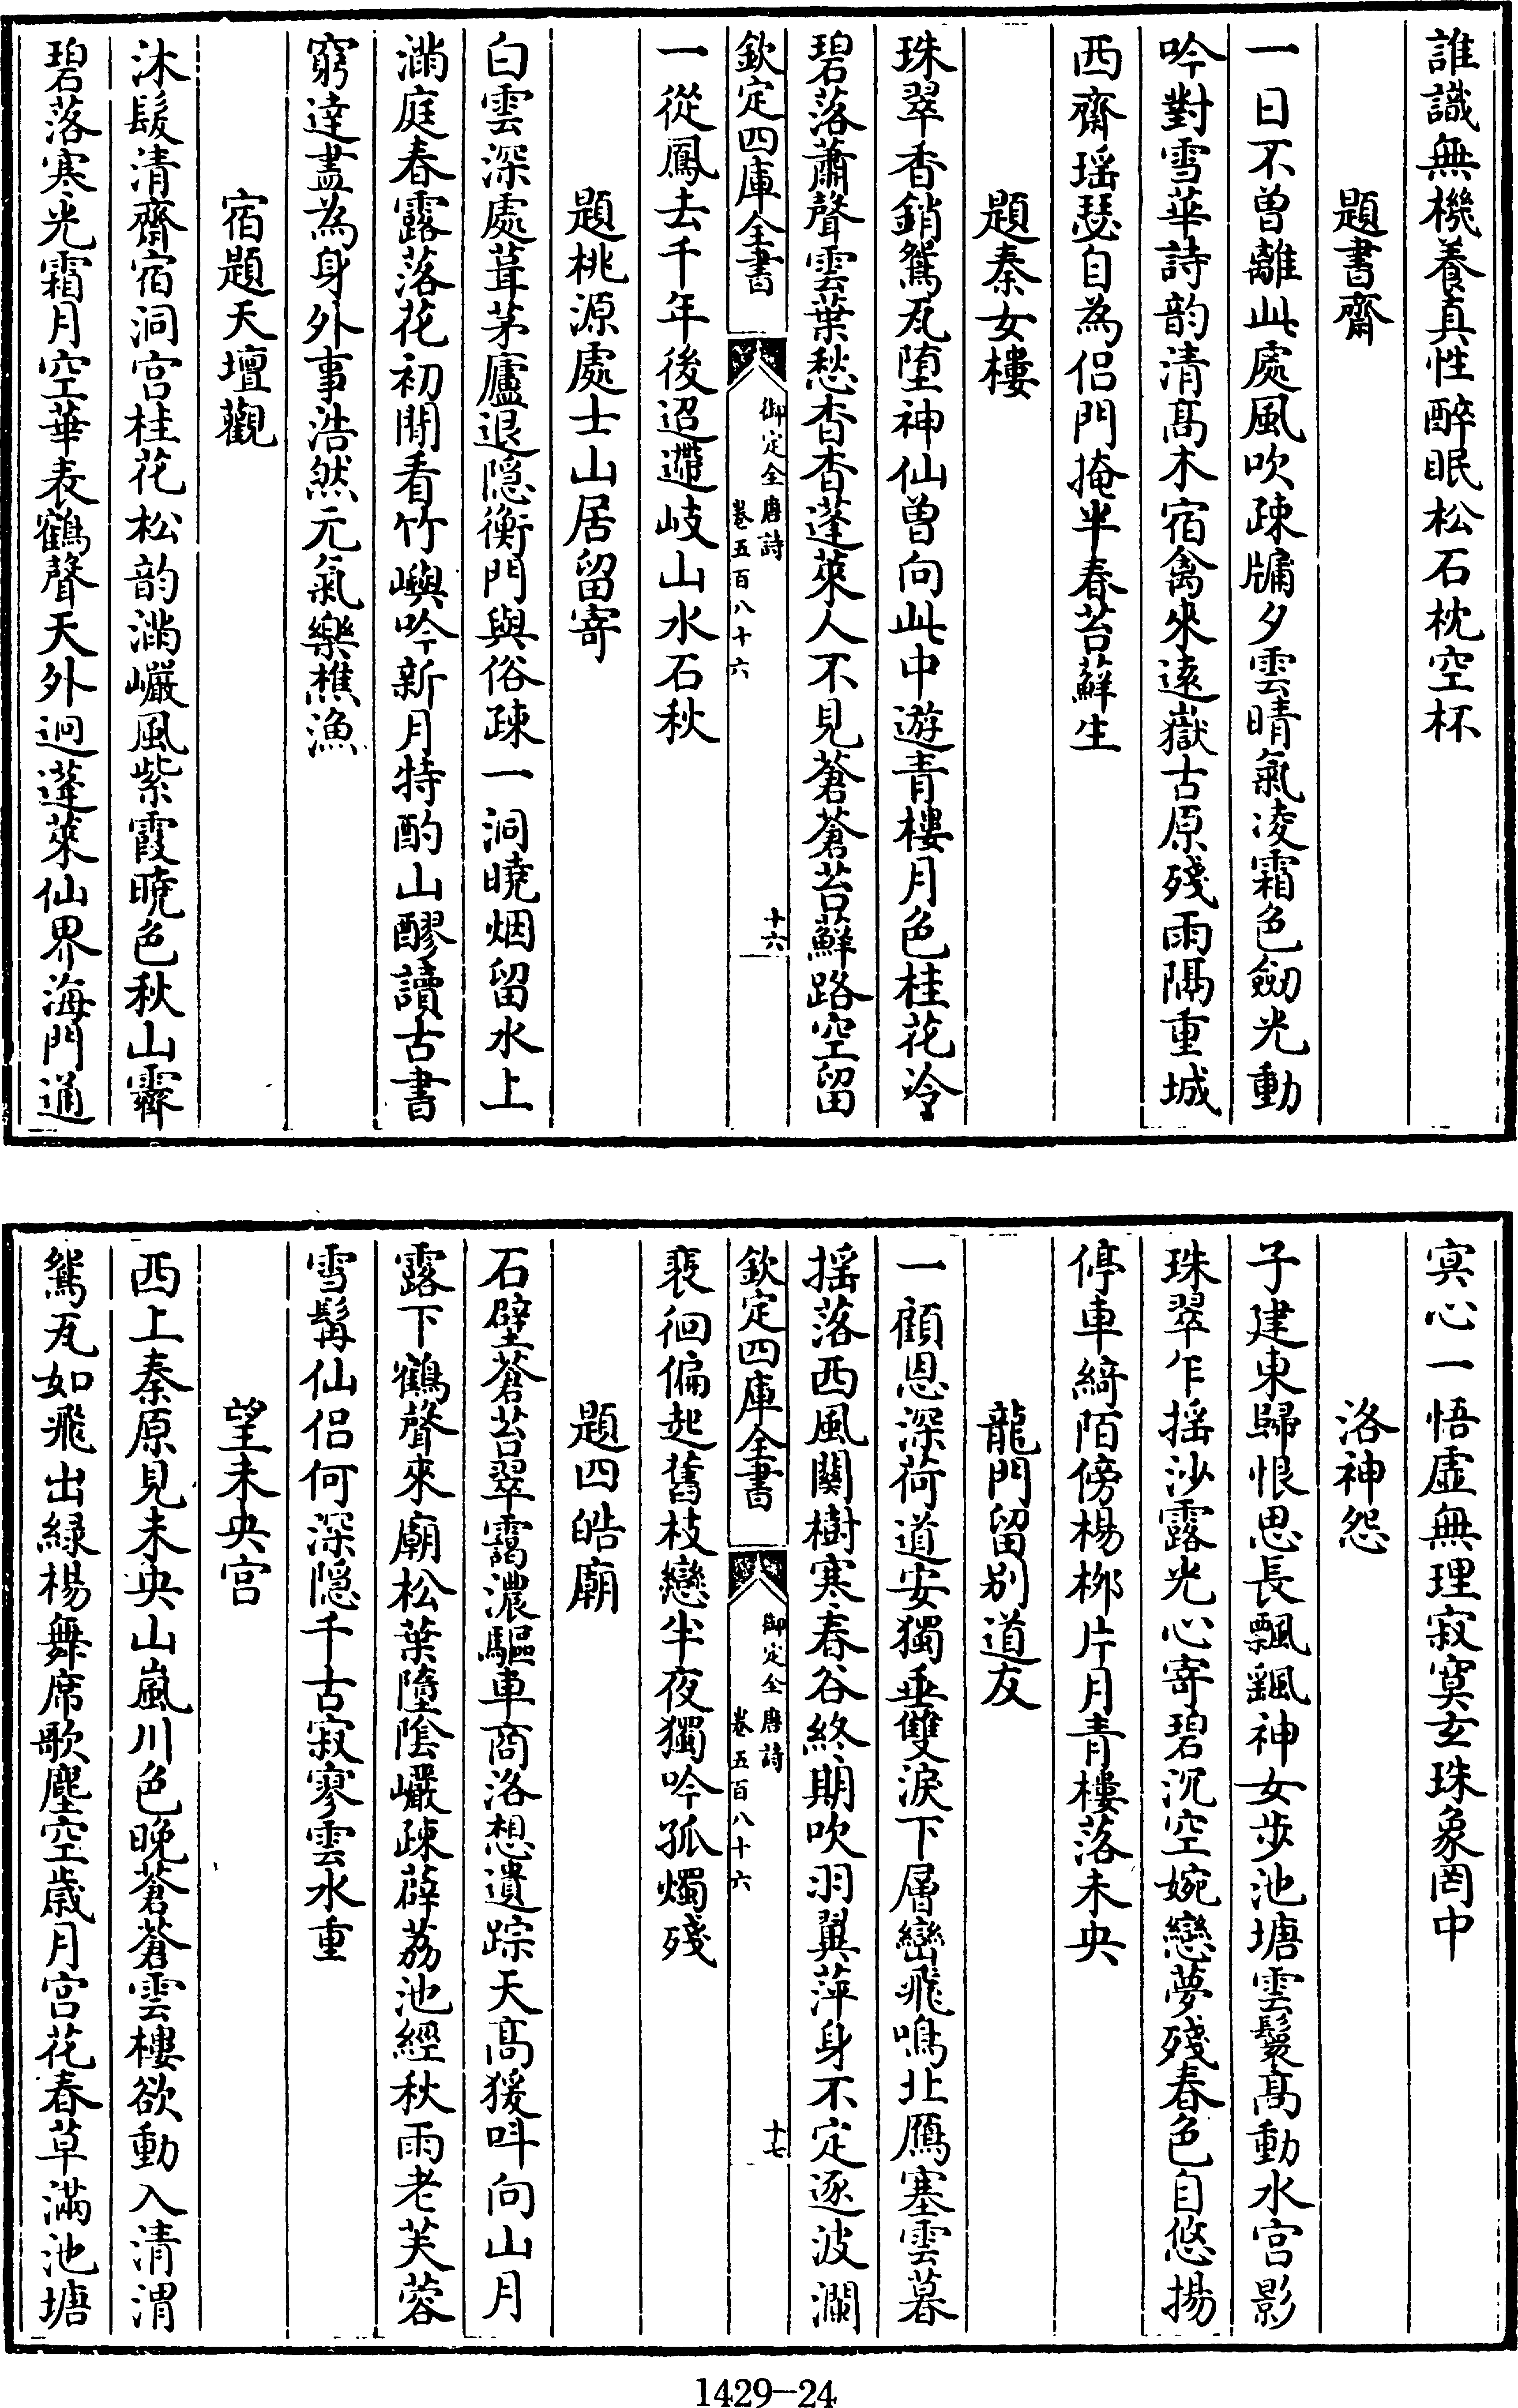 誰識無機養真性醉眠松石枕空杯
題書齋
一日不曾離此處風吹疎牖夕雲晴氣凌霜色劒光動
吟對雪華詩韵清髙木宿禽來遠嶽古原殘雨隔重城
西齋瑶瑟自為侣門掩半春苔蘚生
題秦女樓
珠翠香銷鴛瓦堕神仙曽向此中遊青樓月色桂花冷
碧落蕭聲雲葉愁杳杳蓬萊人不見蒼蒼苔蘚路空留
欽定四庫全書
御定全唐詩
卷五百八十六
十六
一從鳳去千年後迢遰岐山水石秋
題桃源處士山居留寄
白雲深處葺茅廬退隠衡門與俗疎一洞曉烟留水上
滿庭春露落花初閒看竹嶼吟新月特酌山醪讀古書
窮達盡為身外事浩然元氣樂樵漁
宿題天壇觀
沐髮清齋宿洞宫桂花松韵滿巖風紫霞曉色秋山霽
碧落寒光霜月空華表鶴聲天外迥蓬萊仙界海門通
冥心一悟虚無理寂寞玄珠象罔中
洛神怨
子建東歸恨思長飄飖神女步池塘雲鬟髙動水宫影
珠翠乍摇沙露光心寄碧沉空婉戀夢殘春色自悠揚
停車綺陌傍楊栁片月青樓落未央
龍門留别道友
一顧恩深荷道安獨垂雙淚下層巒飛鳴北鴈塞雲暮
摇落西風闗樹寒春谷終期吹羽翼萍身不定逐波瀾
欽定四庫全書
御定全唐詩
卷五百八十六
十七
裴徊偏起舊枝戀半夜獨吟孤燭殘
題四皓廟
石壁蒼苔翠靄濃驅車商洛想遺踪天髙猨呌向山月
露下鶴聲來廟松葉墮隂巖疎薜荔池經秋雨老芙蓉
雪髯仙侣何深隠千古寂寥雲水重
望未央宫
西上秦原見未央山嵐川色晚蒼蒼雲樓欲動入清渭
鴛瓦如飛出緑楊舞席歌塵空歲月宫花春草滿池塘
1429—24